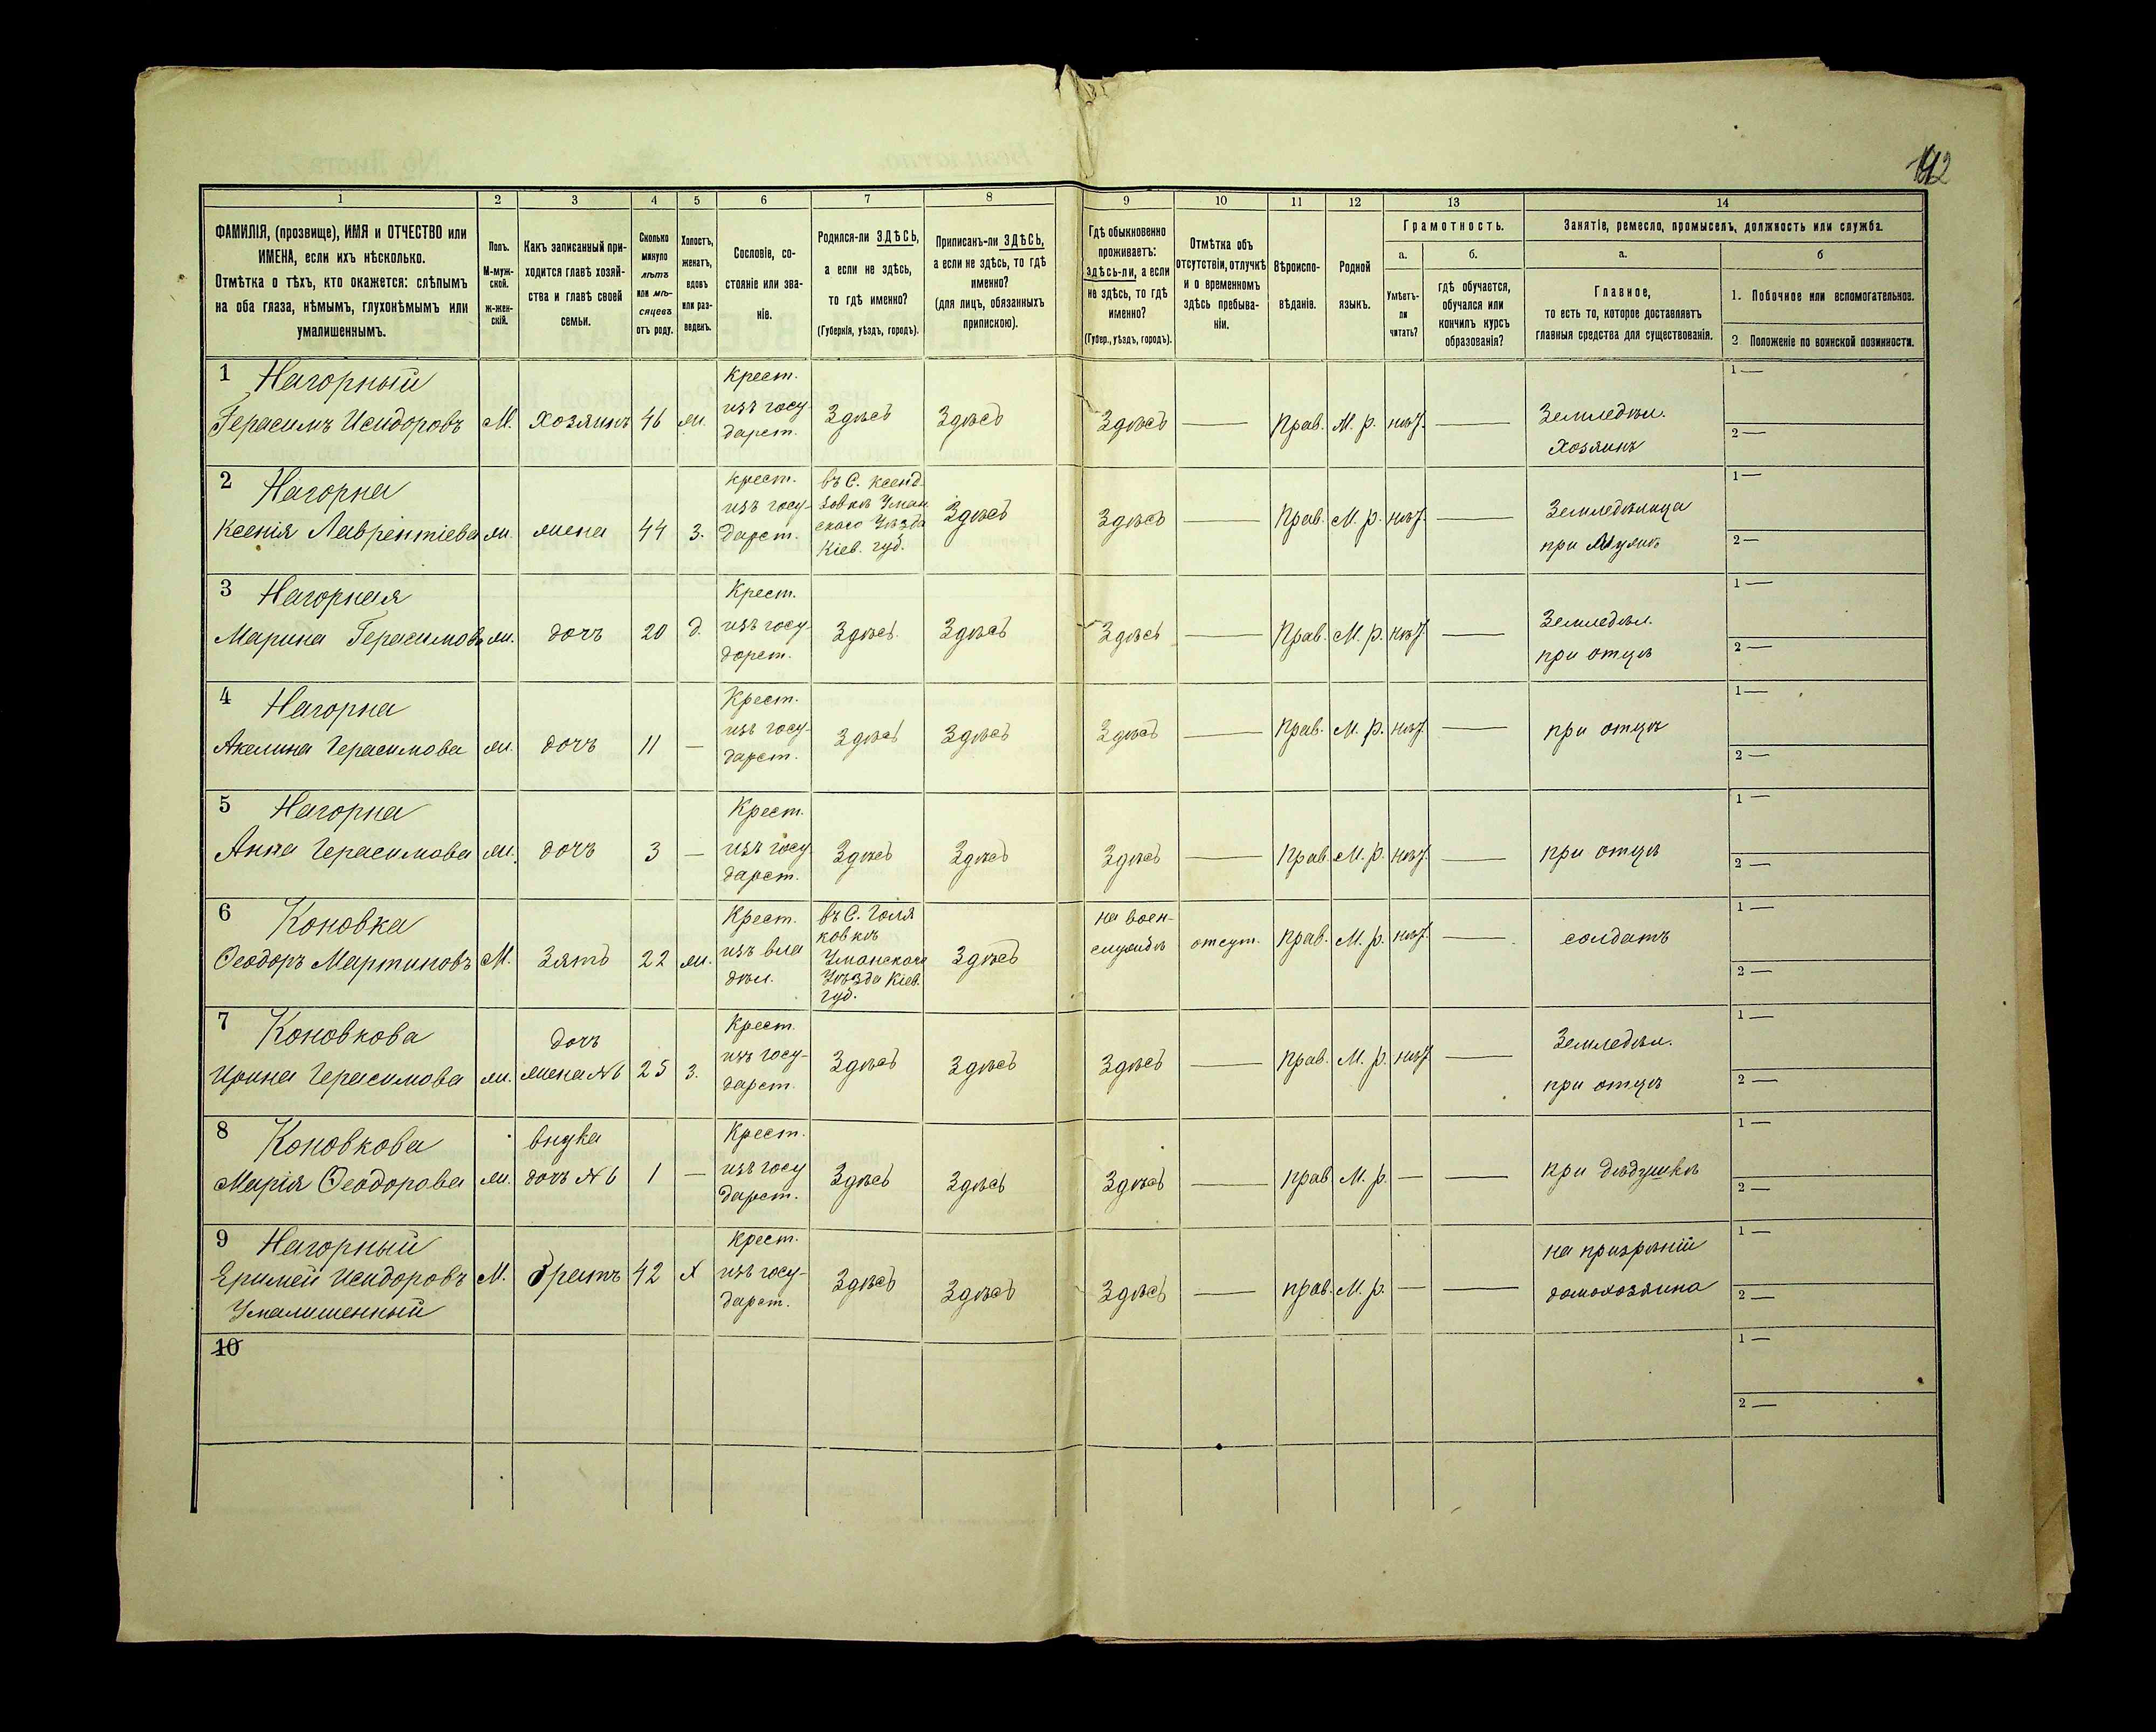 142
1 2 3 4 5 6 7 8 9 10 11 12 13 14
ФАМИЛІЯ, (прозвище), ИМЯ и ОТЧЕСТВО или
ИМЕНА, если ихъ нѣсколько.
Отмѣтка о тѣхъ, кто окажется: слѣпымъ
на оба глаза, нѣмымъ, глухонѣмымъ или
умалишеннымъ.
Полъ.
М-муж-
ской.
ж-жен-
скій.
Какъ записанный при-
ходится главѣ хозяй-
ства и главѣ своей
семьи.
Сколько
минуло
лѣтъ
или мѣ-
сяцевъ
отъ роду.
Холостъ,
женатъ,
вдовъ
или раз-
веденъ.
Сословіе, со-
стояніе или зва-
ніе.
Родился-ли ЗДѢСЬ,
а если не здѣсь,
то гдѣ именно?
(Губернія, уѣздъ, городъ).
Приписанъ-ли ЗДѢСЬ,
а если не здѣсь, то гдѣ
именно?
(для лицъ, обязанныхъ
припискою).
Гдѣ обыкновенно
проживаетъ:
здѣсь-ли, а если
не здѣсь, то гдѣ
именно?
(Губер., уѣздъ, городъ).
Отмѣтка объ
отсутствіи, отлучкѣ
и о временномъ
здѣсь пребыва-
ніи.
Вѣроиспо-
вѣданіе.
Родной
языкъ.
Грамотность.
а.
Умѣетъ-
ли
читать?
б.
гдѣ обучается,
обучался или
кончилъ курсъ
образованія?
Занятіе, ремесло, промыселъ, должность или служба.
а.
Главное,
то есть то, которое доставляетъ
главныя средства для существованія.
б
1. Побочное или вспомогательное.
2 Положеніе по воинской повинности.
1 Нагорный
Герасимъ Исидоровъ
М.
Хозяинъ
46
ж.
Крест.
изъ госу
дарст.
Здѣсь
Здѣсь
Здѣсь
—
Прав.
М. р.
нѣт.
—
Земледѣл.
Хозяинъ
1 —
2 —
2 Нагорна
Ксенія Лаврентіева
ж.
жена
44
з.
крест.
изъ госу-
дарст.
въ С. Ксенд-
зовкѣ Уман
скаго Уѣзда
Кіев. губ.
Здѣсь
Здѣсь
—
Прав.
М. р.
нѣт.
—
Земледѣлица
при Мужѣ
1 —
2 —
3 Нагорная
Марина Герасимова
ж.
дочь
20
д.
Крест.
изъ госу-
дарст.
Здѣсь.
Здѣсь
Здѣсь
—
Прав.
М. р.
нѣт.
—
Земледѣл.
при отцѣ
1 —
2 —
4 Нагорна
Акилина Герасимова
ж.
дочь
11
—
Крест.
изъ госу-
дарст.
Здѣсь
Здѣсь
Здѣсь
—
Прав.
М. р.
нѣт.
—
при отцѣ
1 —
2 —
5 Нагорна
Анна Герасимова
ж.
дочь
3
—
Крест.
изъ госу.
дарст.
Здѣсь
Здѣсь
Здѣсь
—
Прав.
М. р.
нѣт.
—
при отцѣ
1 —
2 —
6 Коновка
Ѳеодоръ Мартиновъ
М.
Зять
22
ж.
Крест.
изъ вла
дѣл.
въ С. Голя
ковкѣ
Уманскаго
Уѣзда Кіев.
губ.
Здѣсь
на воен-
службѣ
отсут.
Прав.
М. р.
нѣт.
—
солдатъ
1 —
2 —
7 Коновкова
Ирина Герасимова
ж.
дочь
жена №6
25
з.
Крест.
изъ госу-
дарст.
Здѣсь
Здѣсь
Здѣсь
—
Прав.
М. р.
нѣт.
—
Земледѣл.
при отцѣ
1 —
2 —
8 Коновкова
Марія Ѳеодорова
ж.
внука
дочь №6
1
—
Крест.
изъ госу
дарст.
Здѣсь
Здѣсь
Здѣсь
—
прав
М. р.
—
—
при дѣдушкѣ
1 —
2 —
9 Нагорный
Еримей Исидоровъ
Умалишенный
М.
братъ
42
х
Крест.
изъ госу-
дарст.
Здѣсь
Здѣсь
Здѣсь
—
прав.
М. р.
—
—
на призрѣній
домохозяина
1 —
2 —
10
1 —
2 —